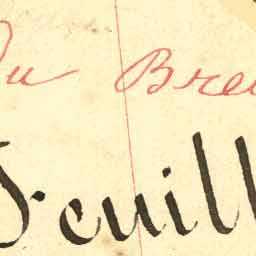 Du Bre
Feuill